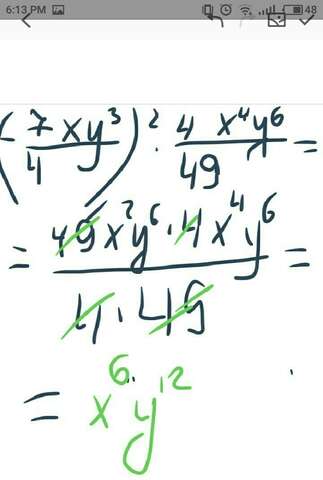 6:13 PM 48
(-7xy³/4)² · 4x⁴y⁶/49 =
= 49x²y⁶ · 4x⁴y⁶/4 · 49 =
= x⁶y¹²